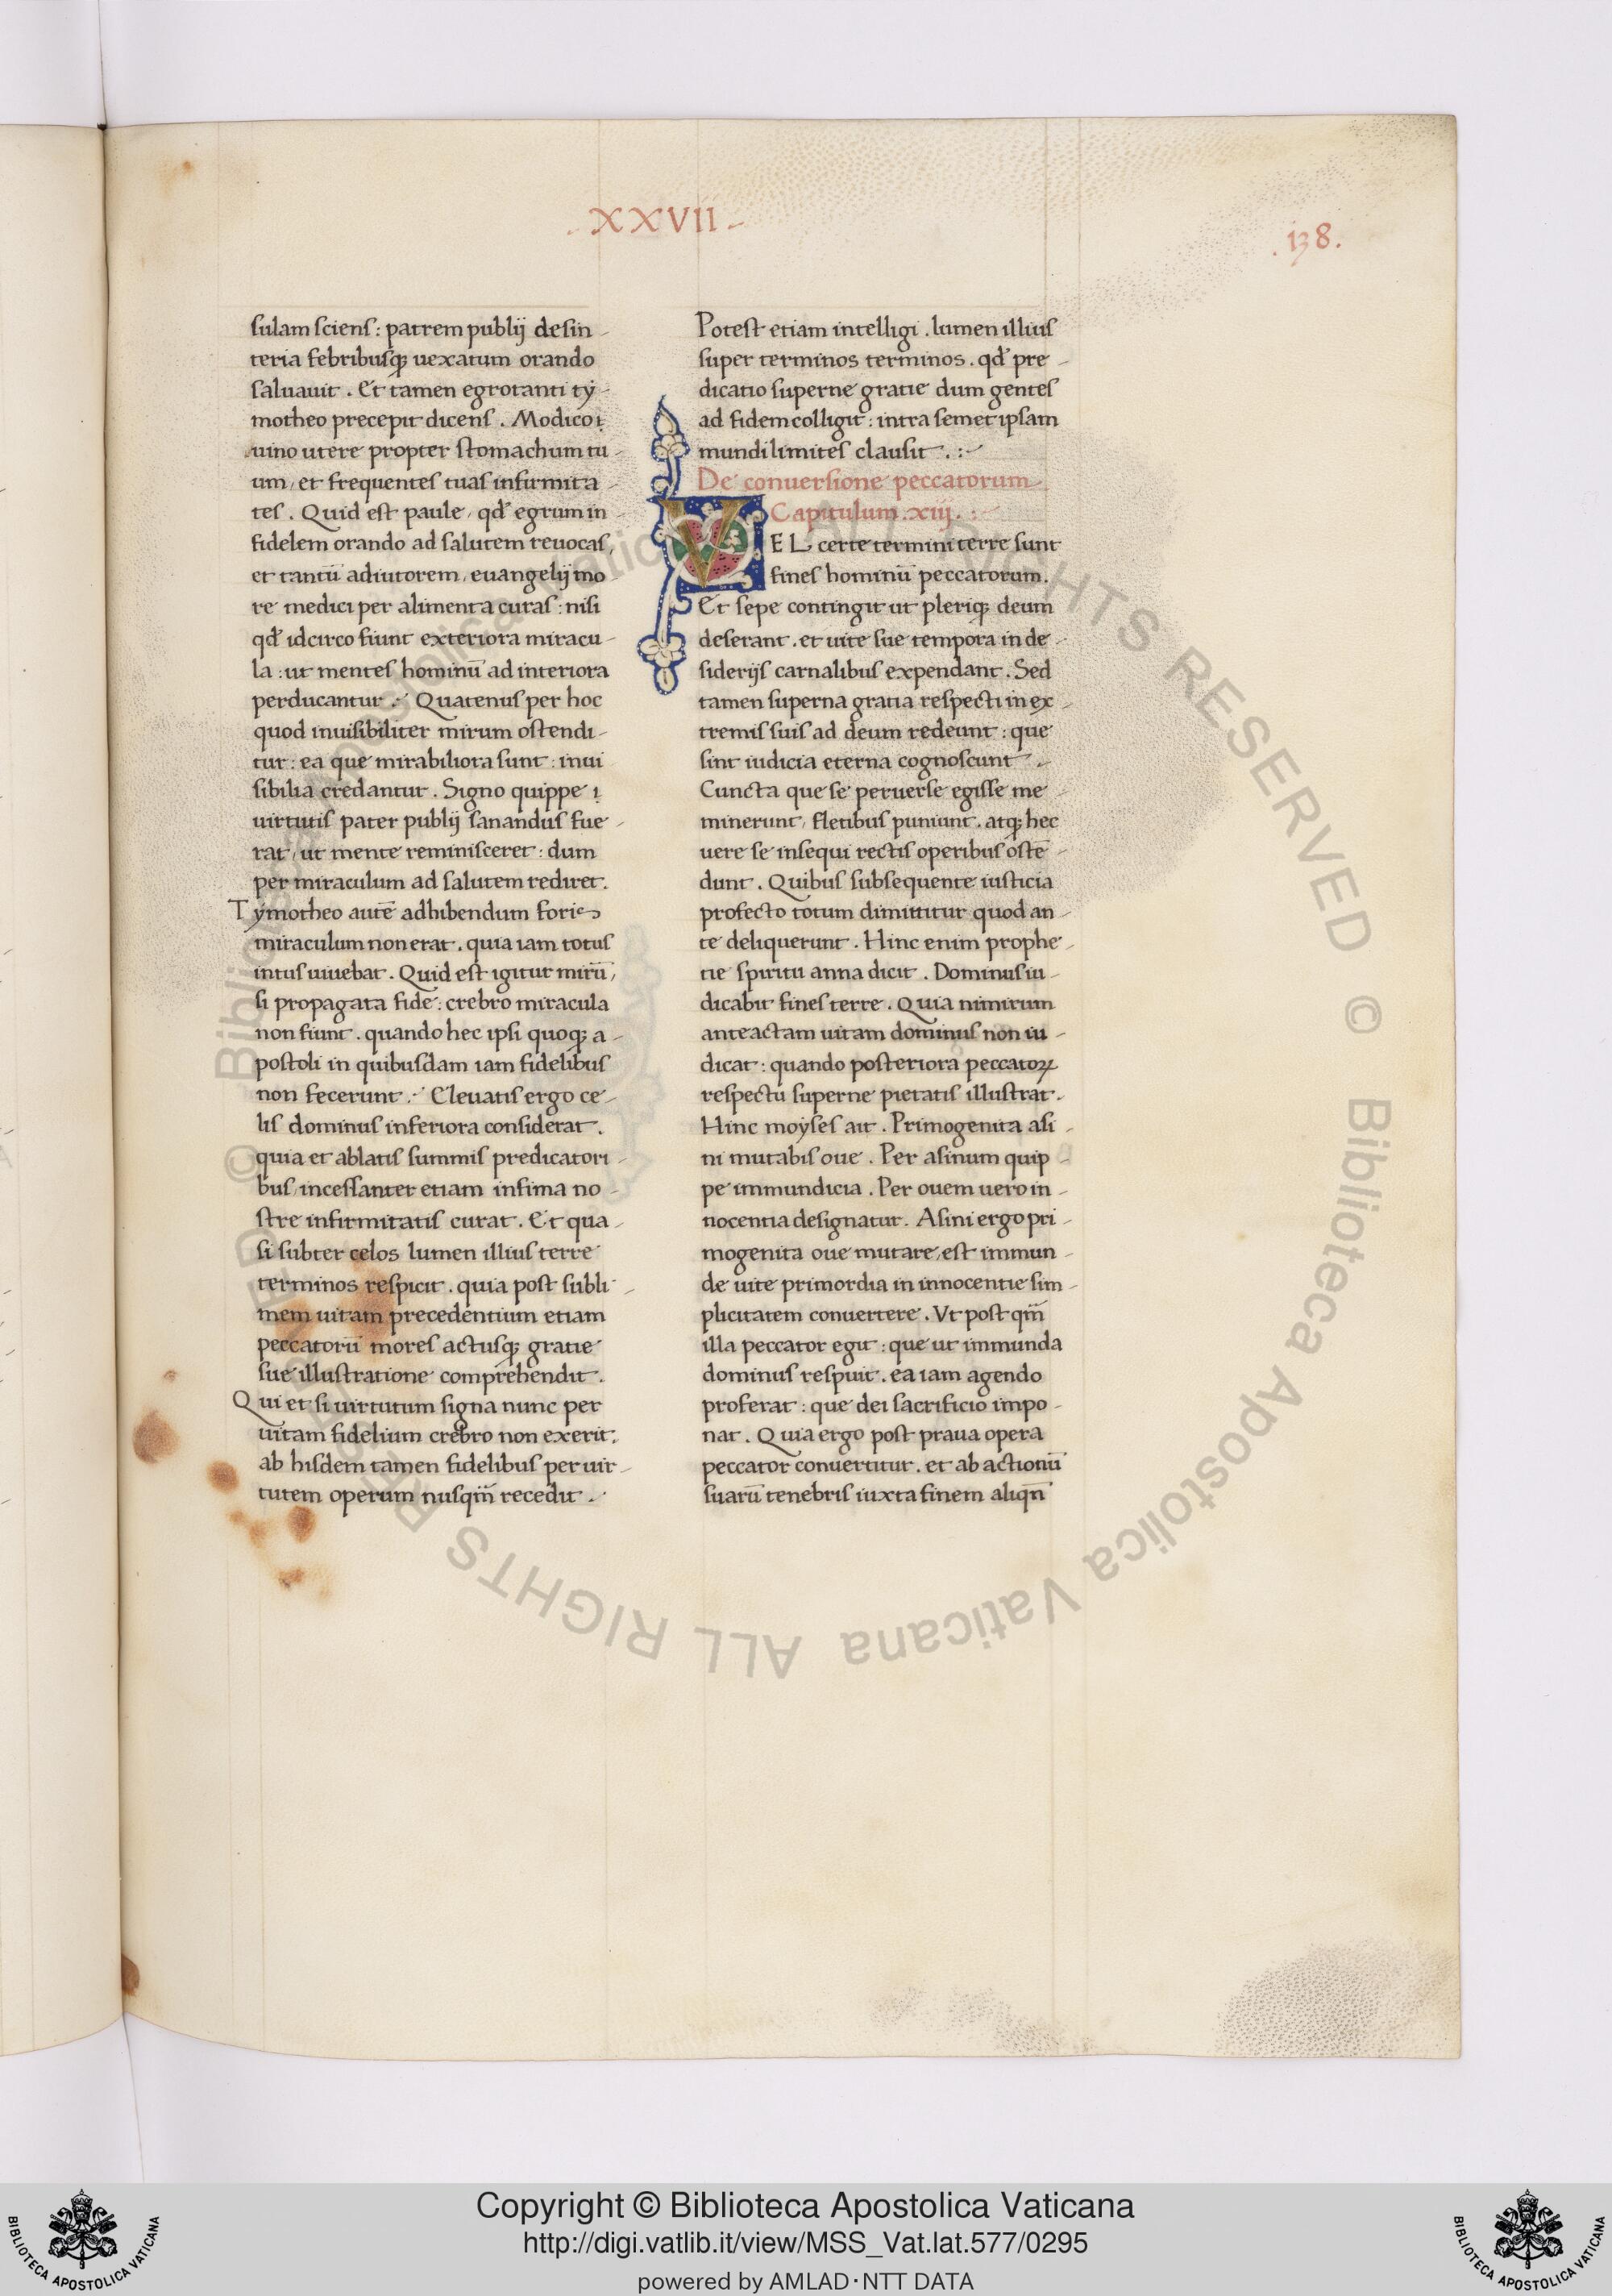 .XXVII.
.138.
sulam sciens: patrem publij desin-
teria febribusq; uexatum orando
saluauit. Et tamen egrotanti tẏ-
motheo precepit dicens. Modico
uino utere propter stomachum tu-
um, et frequentes tuas infirmita-
tes. Quid est paule, qđ egrum in-
fidelem orando ad salutem reuocas,
et tantū adiutorem, euangelij mo-
re medici per alimenta curas: nisi
qđ idcirco fiunt exteriora miracu-
la: ut mentes hominū ad interiora
perducantur. Quatenus per hoc
quod inuisibiliter mirum ostendi-
tur: ea que mirabiliora sunt: inui
sibilia credantur. Signo quippe
uirtutis pater publij sanandus fue-
rat, ut mente reminisceret: dum
per miraculum ad salutem rediret.
Tẏmotheo autē adhibendum foris
miraculum non erat. quia iam totus
intus uiuebat. Quid est igitur mirū,
si propagata fide: crebro miracula
non fiunt. quando hec ipsi quoq; a-
postoli in quibusdam iam fidelibus
non fecerunt. Eleuatis ergo ce-
lis dominus inferiora considerat.
quia et ablatis summis predicatori-
bus, incessanter etiam infima no-
stre infirmitatis curat. Et qua-
si subter celos lumen illius terre
terminos respicit. quia post subli-
mem uitam precedentium etiam
peccatorū mores actusq; gratie
sue illustratione comprehendit.
Qui et si uirtutum signa nunc per
uitam fidelium crebro non exerit:
ab hisdem tamen fidelibus per uir-
tutem operum nusqm̄ recedit.
Potest etiam intelligi. lumen illius
super terminos terminos. qđ pre-
dicatio superne gratie dum gentes
ad fidem colligit: intra semet ipsam
mundi limites clausit.:-
De conuersione peccatorum
Capitulum.xiij.:-
VEL certe termini terre sunt
fines hominū peccatorum.
Et sepe contingit ut pleriq; deum
deserant. et uite sue tempora in de-
siderijs carnalibus expendant. Sed
tamen superna gratia respecti in ex-
tremis suis ad deum redeunt: que
sint iudicia eterna cognoscunt.
Cuncta que se peruerse egisse me-
minerunt, fletibus puniunt. atq; hec
uere se insequi rectis operibus ostē-
dunt. Quibus subsequente iusticia
profecto totum dimittitur quod an-
te deliquerunt. Hinc enim prophe-
tie spiritu anna dicit. Dominus iu-
dicabit fines terre. Quia nimirum
anteactam uitam dominus non iu-
dicat: quando posteriora peccatoꝝ
respectu superne pietatis illustrat.
Hinc moẏses ait. Primogenita asi-
ni mutabis oue. Per asinum quip-
pe immundicia. Per ouem uero in-
nocentia designatur. Asini ergo pri-
mogenita oue mutare, est immun-
de uite primordia in innocentie sim-
plicitatem conuertere. Vt postqm̄
illa peccator egit: que ut immunda
dominus respuit. ea iam agendo
proferat: que dei sacrificio impo-
nat. Quia ergo post praua opera
peccator conuertitur. et ab actionū
suarū tenebris iuxta finem aliqn̄
© Biblioteca Apostolica Vaticana ALL RIGHTS RESERVED © Biblioteca Apostolica Vaticana ALL RIGHTS RESERVED
Copyright © Biblioteca Apostolica Vaticana
http://digi.vatlib.it/view/MSS_Vat.lat.577/0295
powered by AMLAD·NTT DATA
BIBLIOTECA APOSTOLICA VATICANA
BIBLIOTECA APOSTOLICA VATICANA